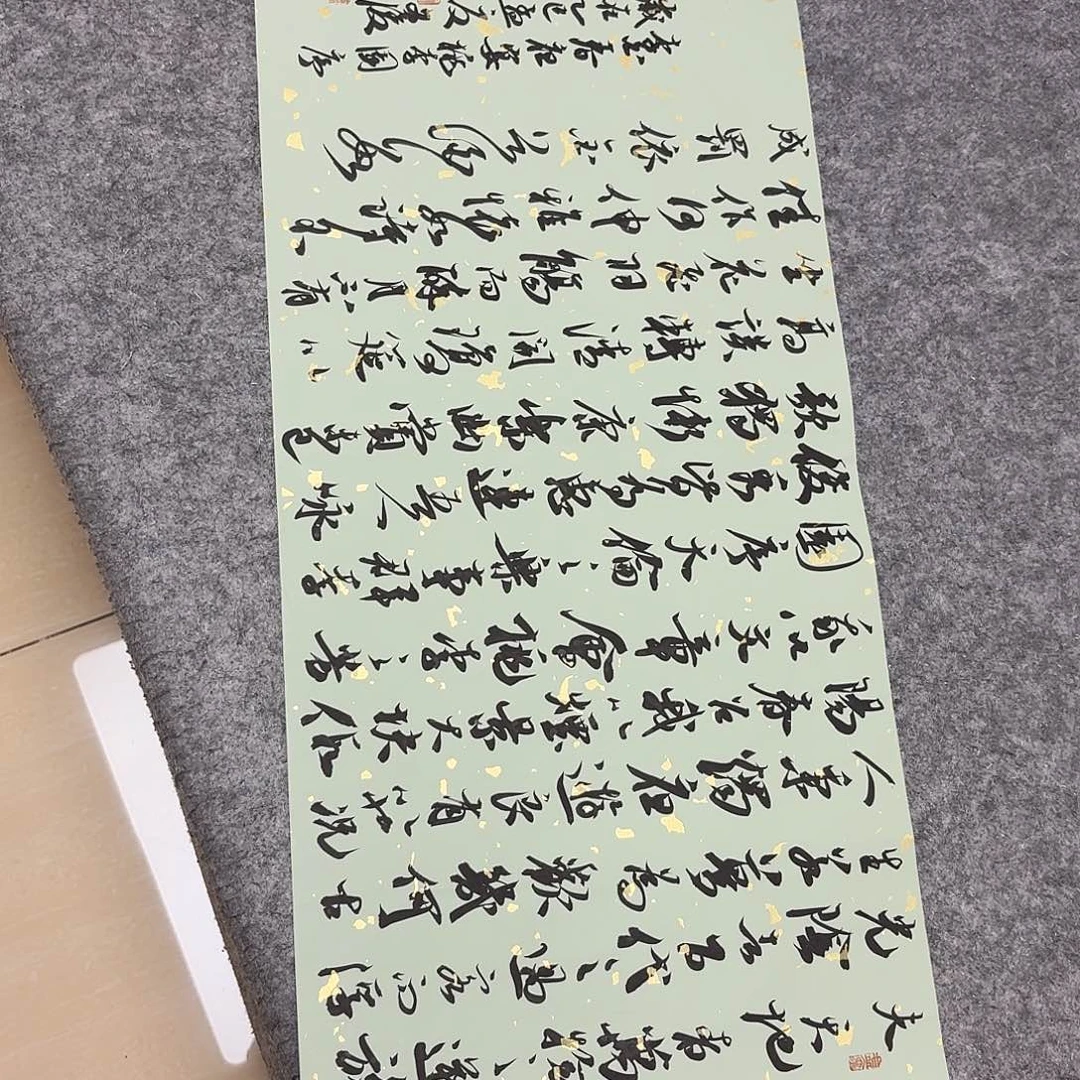 夫天地者萬物之逆旅
光陰者百代之過客而浮
生若夢為歡幾何古
人秉燭夜遊良有以也況
陽春召我以煙景大塊假
我以文章會桃李之芳
園序天倫之樂事群季
俊秀皆為惠連吾人詠
歌獨慚康樂幽賞未已
高談轉清開瓊筵以
坐花飛羽觴而醉月不有
佳作何伸雅懷如詩不
成罰依金谷酒數
李白春夜宴桃李園序
歲在乙巳孟夏